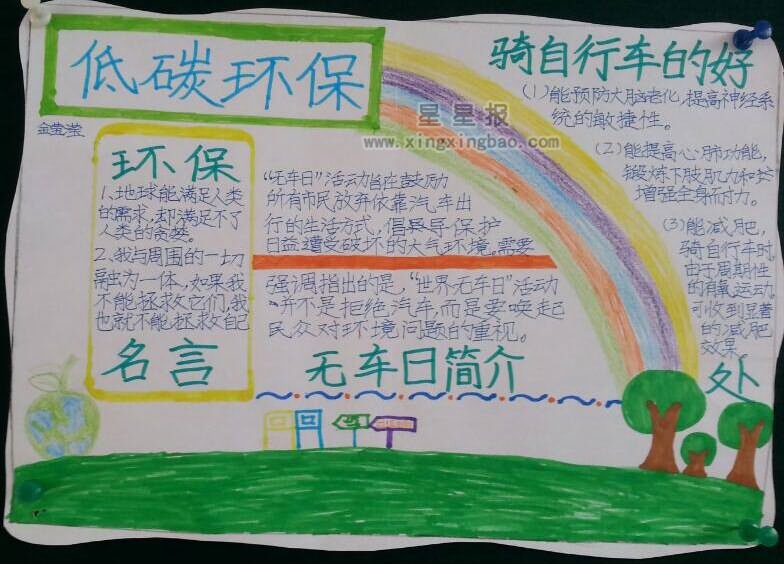 低碳环保
金莹滢
环保
1、地球能满足人类
的需求,却满足不了
人类的贪婪。
2、我与周围的一切
融为一体,如果我
不能拯救它们,我
也就不能拯救自己
名言
“无车日”活动旨在鼓励
所有市民放弃依靠汽车出
行的生活方式,倡导导保护
日益遭受破坏的大气环境。需要
强调指出的是,“世界无车日”活动
并不是拒绝汽车,而是要唤起
民众对环境问题的重视。
无车日简介
骑自行车的好
(1)能预防大脑老化,提高神经系
统的敏捷性。
(2)能提高心肺功能,
锻炼下肢肌力和
增强全身耐力。
(3)能减肥,
骑自行车时,
由于周期性
的有氧运动
可收到显著
的减肥
效果。
处
星星报
www.xingxingbao.com